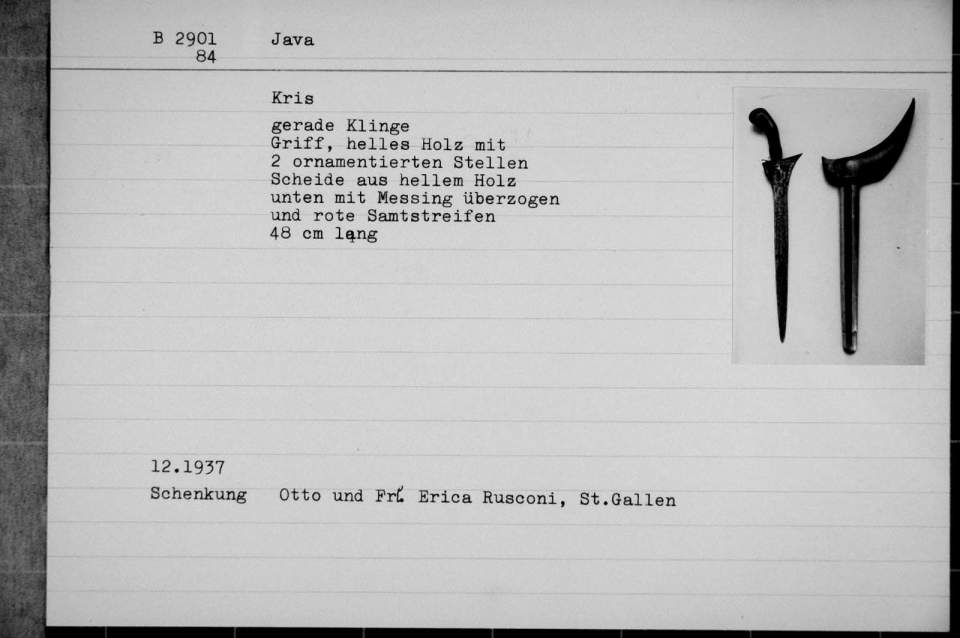 B 2901 Java
84
Kris
gerade Klinge
Griff, helles Holz mit
2 ornamentierten Stellen
Scheide aus hellem Holz
unten mit Messing überzogen
und rote Samtstreifen
48 cm lang
12.1937
Schenkung Otto und Frl. Erica Rusconi, St.Gallen